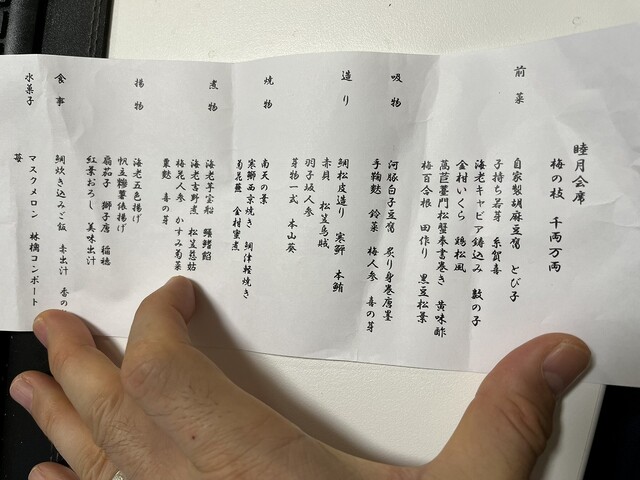 睦月会席
梅の枝 千両万両
前菜
自家製胡麻豆腐 とび子
子持ち若芽 糸賀喜
海老キャビア鋳込み 数の子
金村いくら 鶏松風
萵苣薹門松蟹奉書巻き 黄味酢
梅百合根 田作り 黒豆松葉
吸物
河豚白子豆腐 炙り身巻唐墨
手鞠麩 鈴菜 梅人参 喜の芽
造り
鯛松皮造り 寒鰤 本鮪
赤貝 松笠烏賊
羽子板人参
芽物一式 本山葵
焼物
南天の景
寒鰤西京焼き 珂津軽焼き
菊花蕪 金村蜜煮
煮物
海老芋宝船 鰻鰭餡
海老吉野煮 松笠慈姑
梅花人参 かすみ菊菜
粟麩 喜の芽
揚物
海老五色揚げ
帆立糝薯俵揚げ
扇茄子 獅子唐 稲穂
紅葉おろし 美味出汁
食事
鯛炊き込みご飯 赤出汁 香の
水菓子
マスクメロン 林檎コンポート
苺